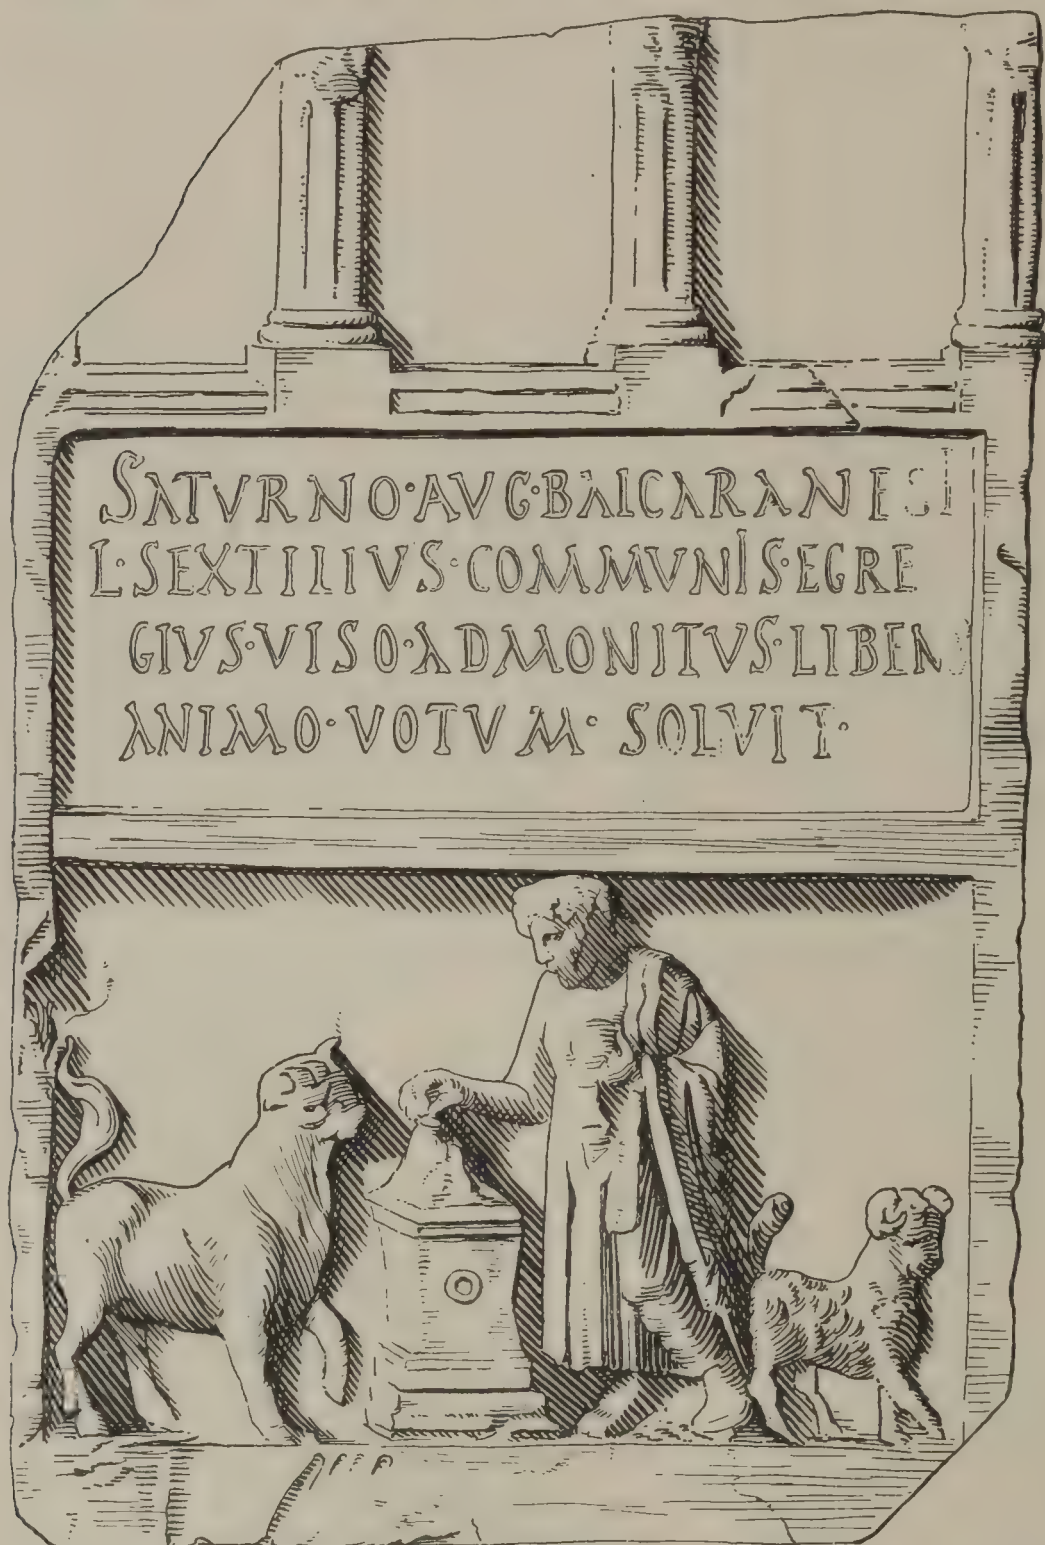 SATVRNO·AVG·BALCARANESI
L·SEXTILIVS·COMMVNIS·EGRE
GIVS·VISO·ADMONITVS·LIBENS
ANIMO·VOTVM· SOLVIT·